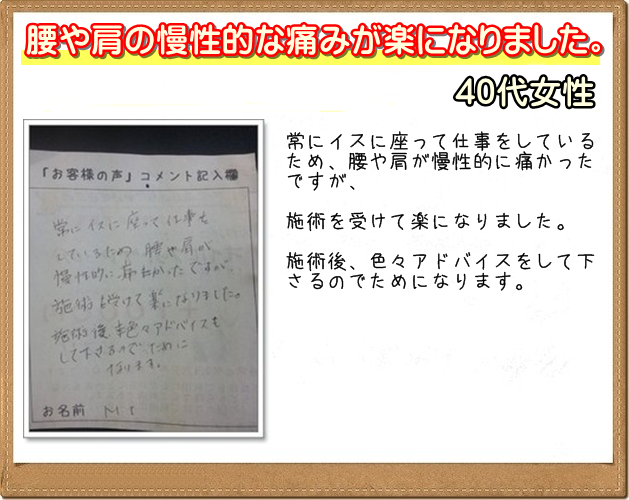 腰や肩の慢性的な痛みが楽になりました。
40代女性
「お客様の声」コメント記入欄
常にイスに座って仕事を
しているため 腰や肩が
慢性的に痛かったですが、
施術を受けて楽になりました。
施術後色々アドバイスを
して下さるので ために
なります。
お名前 M t
常にイスに座って仕事をしている
ため、腰や肩が慢性的に痛かった
ですが、
施術を受けて楽になりました。
施術後、色々アドバイスをして下
さるのでためになります。